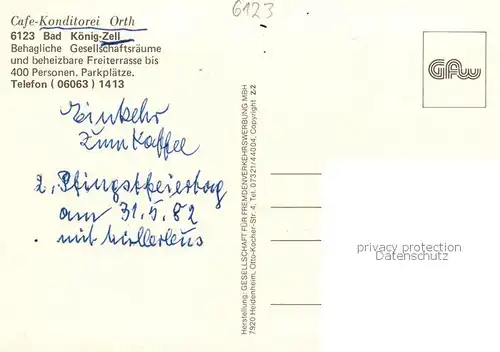 6123
Cafe-Konditorei Orth
6123 Bad König-Zell
Behagliche Gesellschaftsräume
und beheizbare Freiterrasse bis
400 Personen. Parkplätze.
Telefon (06063) 1413
GFW
Einkehr
zum Kaffee
2. Pfingstfeiertag
am 31.5.82
mit
Herstellung: GESELLSCHAFT FÜR FREMDENVERKEHRSWERBUNG MBH
7920 Heidenheim, Otto-Kocher-Str. 4, Tel. 07321/44004, Copyright Z/2
privacy protection
Datenschutz